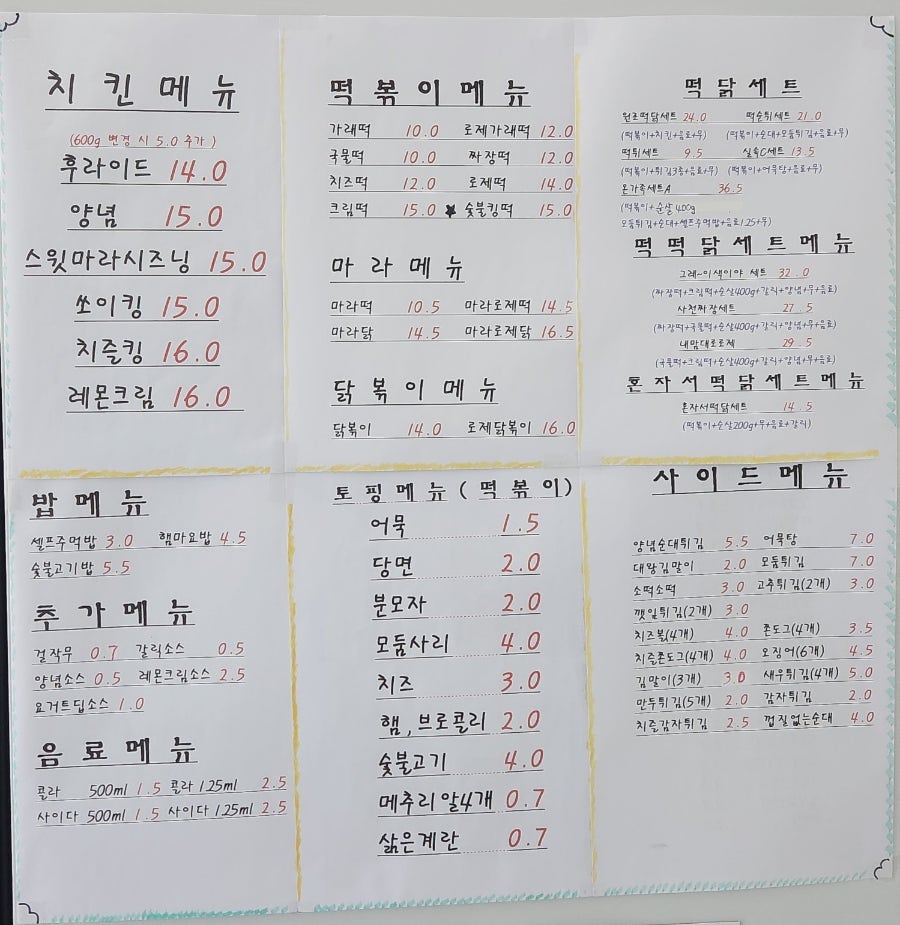 치킨메뉴
(600g 변경 시 5.0 추가)
후라이드 14.0
양념 15.0
스윗마라시즈닝 15.0
쏘이킹 15.0
치즐킹 16.0
레몬크림 16.0
떡볶이메뉴
가래떡 10.0 로제가래떡 12.0
국물떡 10.0 짜장떡 12.0
치즈떡 12.0 로제떡 14.0
크림떡 15.0 ★ 숯불킹떡 15.0
마라메뉴
마라떡 10.5 마라로제떡 14.5
마라닭 14.5 마라로제닭 16.5
닭볶이메뉴
닭볶이 14.0 로제닭볶이 16.0
떡닭세트
원조떡닭세트 24.0 떡순튀세트 21.0
(떡볶이+치킨+음료+무) (떡볶이+순대+모둠튀김+음료+무)
떡튀세트 9.5 실속C세트 13.5
(떡볶이+튀김3종+음료+무) (떡볶이+어묵탕+음료+무)
온가족세트A 36.5
(떡볶이+순살400g
모둠튀김+순대+셀프주먹밥+음료1.25+무)
떡떡닭세트메뉴
그래~이색이야 세트 32.0
(짜장떡+크림떡+순살400g+갈릭+양념+무+음료)
사천짜장세트 27.5
(짜장떡+국물떡+순살400g+갈릭+양념+무+음료)
내맘대로로제 29.5
(국물떡+크림떡+순살400g+갈릭+양념+무+음료)
혼자서떡닭세트메뉴
혼자서떡닭세트 14.5
(떡볶이+순살200g+무+음료+갈릭)
밥메뉴
셀프주먹밥 3.0 햄마요밥 4.5
숯불고기밥 5.5
추가메뉴
컬작무 0.7 갈릭소스 0.5
양념소스 0.5 레몬크림소스 2.5
요거트딥소스 1.0
음료메뉴
콜라 500ml 1.5 콜라 1.25ml 2.5
사이다 500ml 1.5 사이다 1.25ml 2.5
토핑메뉴(떡볶이)
어묵 1.5
당면 2.0
분모자 2.0
모둠사리 4.0
치즈 3.0
햄,브로콜리 2.0
숯불고기 4.0
메추리알4개 0.7
삶은계란 0.7
사이드메뉴
양념순대튀김 5.5 어묵탕 7.0
대왕김말이 2.0 모둠튀김 7.0
소떡소떡 3.0 고추튀김(2개) 3.0
깻잎튀김(2개) 3.0
치즈볼(4개) 4.0 쫀도그(4개) 3.5
치즐쫀도그(4개) 4.0 오징어(6개) 4.5
김말이(3개) 3.0 새우튀김(4개) 5.0
만두튀김(5개) 2.0 감자튀김 2.0
치즐감자튀김 2.5 껍질없는순대 4.0